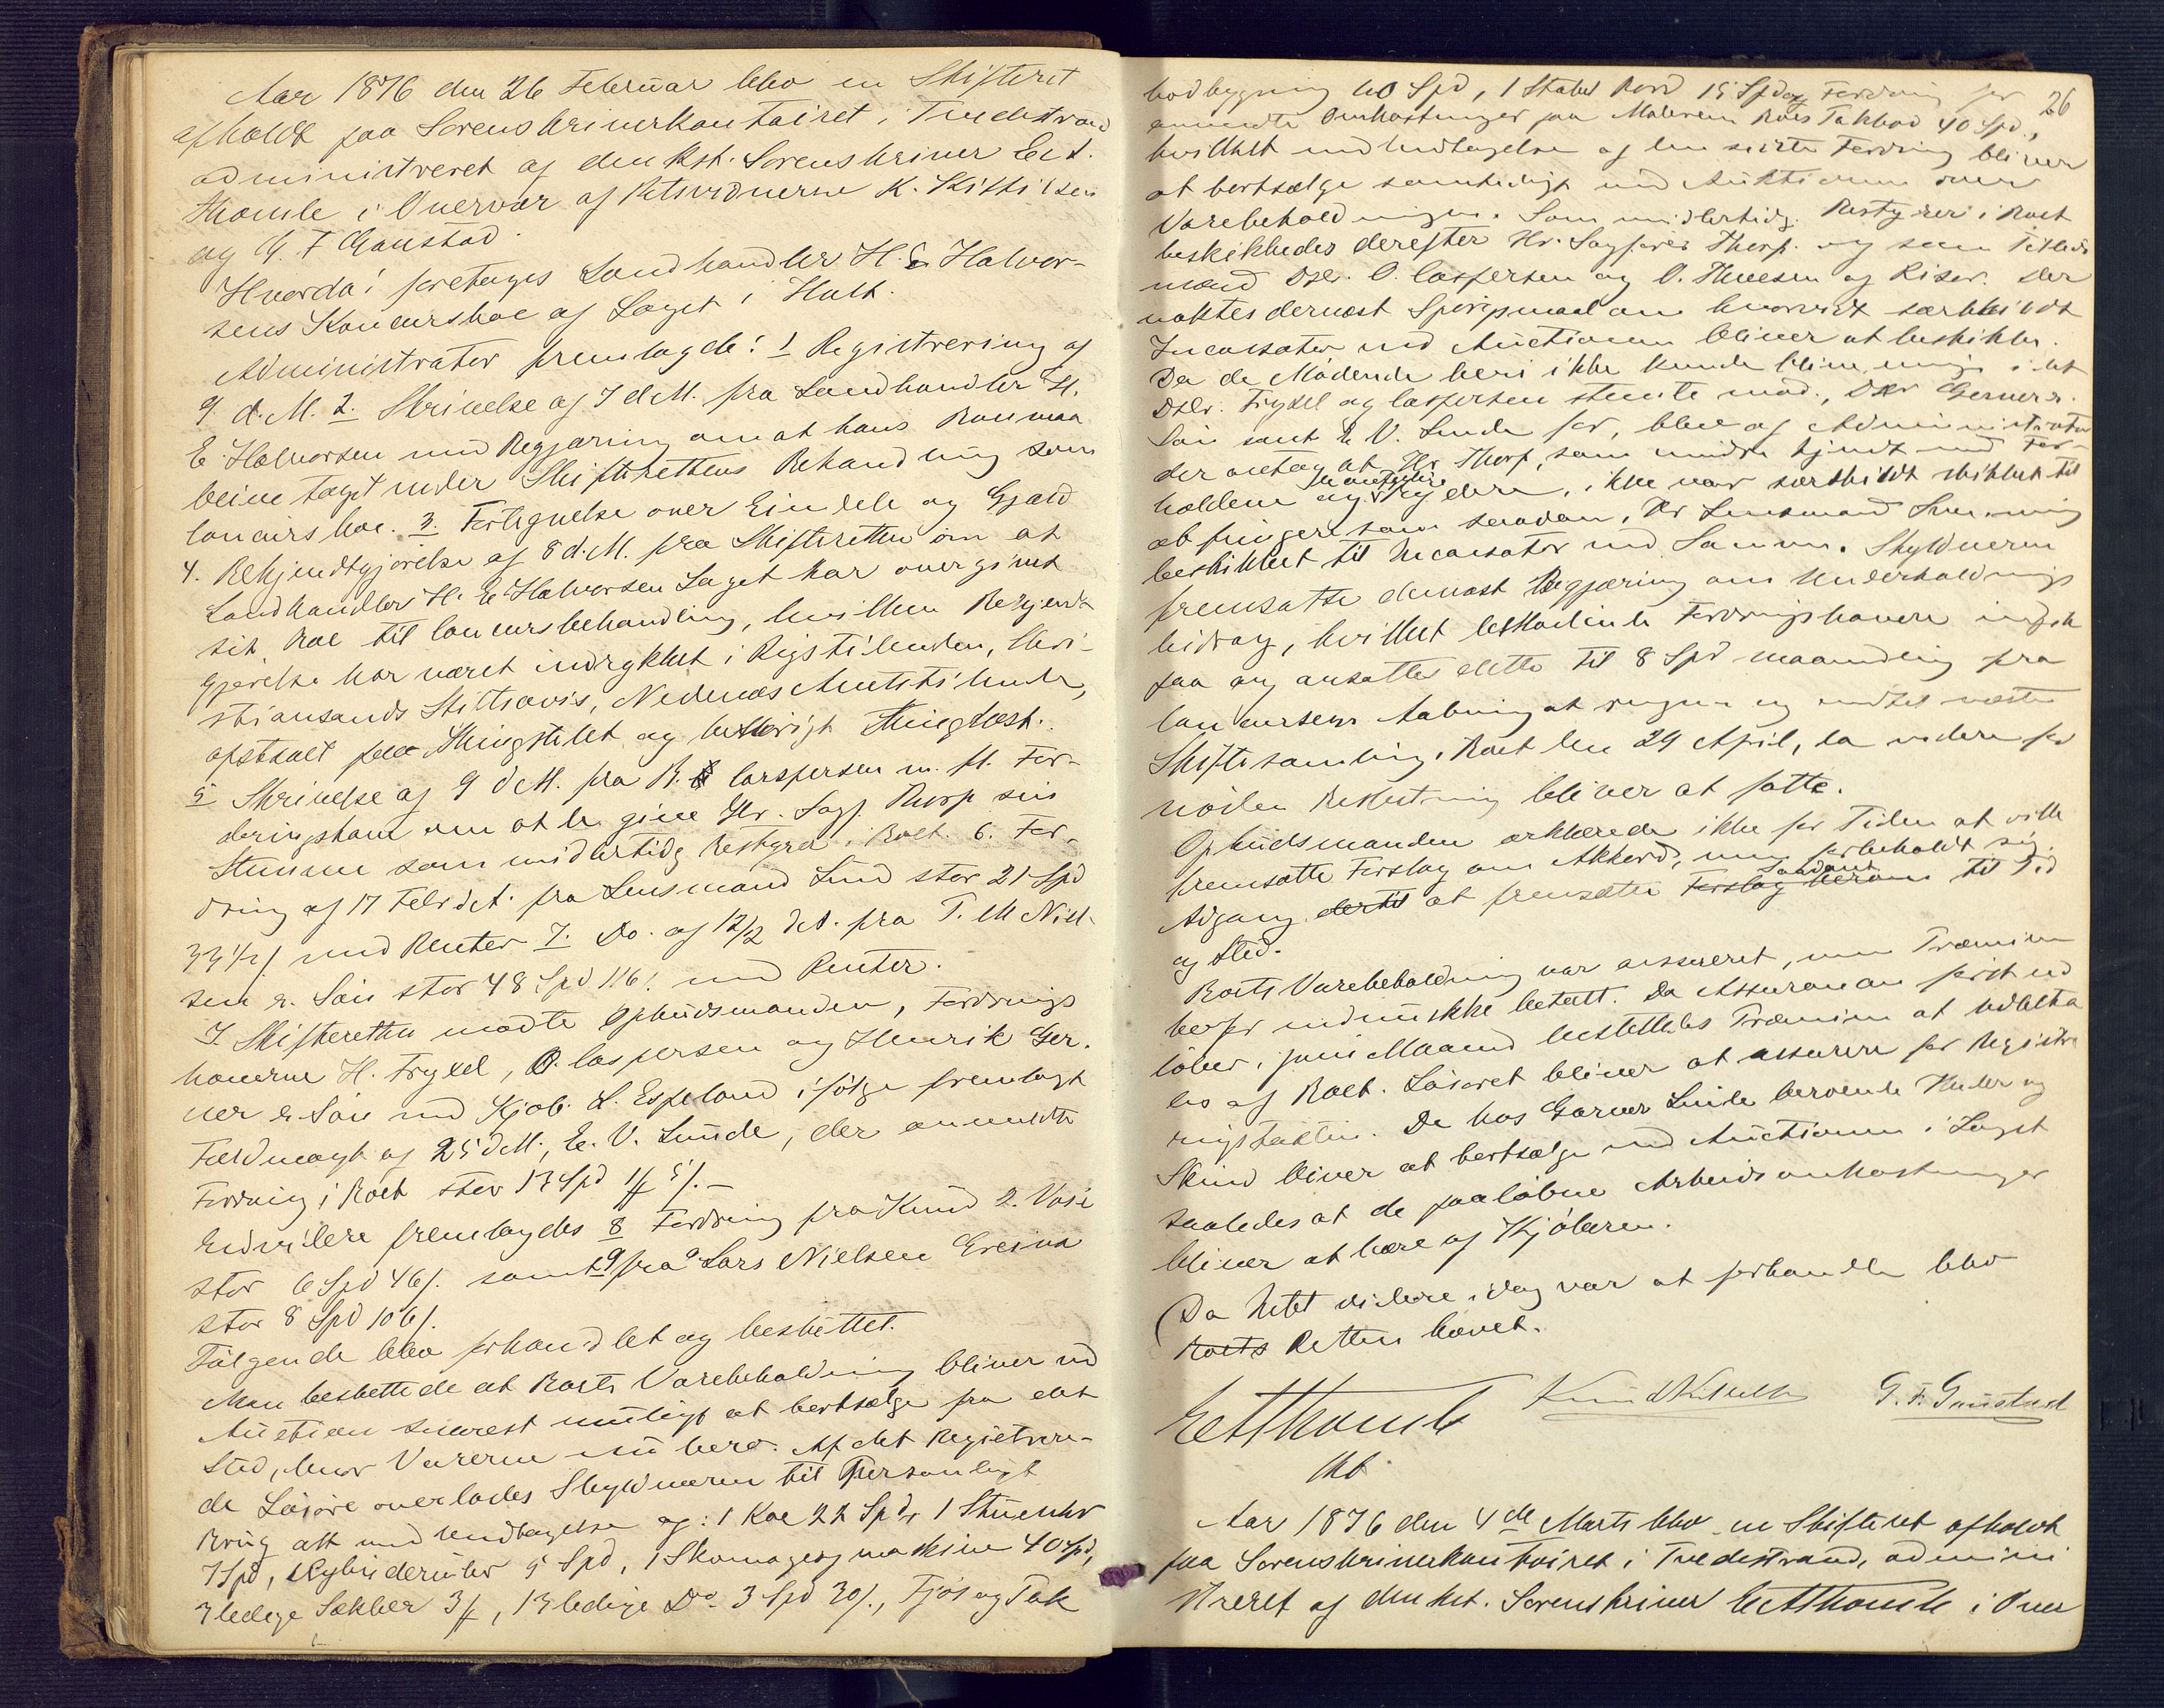 Aar 1876 den 26 Februar blev en Skifteret
afholdt paa Sorenskriverkontoiret i Tvedestrand
administreret af den kst. Sorenskriver E A.
Thomle i Overvær af Retsvidnerne K. Kittilsen
og G. F Gaustad.
Hvorda! foretages Landhandler H. E Halvor-
sens Konkursboe af Laget i Holt.
Administrator fremlagde: 1 Registrering af
9 d. M. 2. Skrivelse af 7 d M. fra Landhandler H.
E Halvorsen med Begjæring om at hans Bo maa
blive taget under Skifterettens Behandling som
Concursboe. 3. Fortegnelse over Eiendele og Gjæld
4. Bekjendtgjørelse af 8 d. M. fra Skifteretten om at
Landhandler H. E Halvorsen Laget har overgivet
sit Boe til Concursbehandling, hvilken Bekjendt
gjørelse har været indrykket i Rigstidenden, Chri-
stiansands Stiftsavis, Nedenæs Amtstidende,
opslaaet paa Thingstedet og behørigt Thinglæst.
5 Skrivelse af 9 d M. fra B. Caspersen m. fl. For-
dringshave om at de give Hr. Sagf. Thorp sin
Stemme som midlertidig Bestyrer i Boet. 6. For-
dring af 17 Febr d A. fra Lensmand Lund stor 21 Spd
33 1/2 s med Renter 7. Do. af 12/2 d A. fra T. M Niel-
sen & Søn stor 48 Spd 116 s med Renter.
I Skifteretten mødte Opbudsmanden, Fordrings
haverne H. Fryxel, O. Caspersen og Henrik Ger-
ner & Søn ved Kjøb. L. Espeland ifølge fremlagt
Fuldmagt af 25 d M., E. V. Lunde, der anmeldte
Fordring i Boet stor 13 Spd 1 ff 5 s. -
Endvidere fremlagdes 8 Fordring fra Knud 2. Vosi
stor 6 Spd 46 s. samt 9 fra Lars Nielsen
stor 8 Spd 106 s.
Følgende blev forhandlet og besluttet.
Man besluttede at Boets Varebeholdning bliver ved
Auction snarest muligt at bortsælge fra det
Sted, hvor Varerne nu bero. Af det Registrere-
de Løsøre overlades Skyldneren til Personligt
Brug alt med Undtagelse af: 1 Koe 22 Spd, 1 Stueuhr
7 Spd, Cylinderuhr 5 Spd, 1 Skomagersymaskine 40 Spd,
3 ledige Sække 3 ff, 13 ledige Do. 3 Spd 30 s., Fjøs og Tak
26
bodbygning 60 Spd, 1 Stabel Bord 15 Spd og Fordring for
anvendte Omkostninger paa Taksbod 40 Spd.,
hvilket med Undtagelse af den sidste Fordring bliver
at bortsælge samtidigt med Auktionen over
Varebeholdningen. Som midlertidig Bestyrer i Boet
beskikkedes derefter Hr. Sagfører Thorp. og som Tillids
mænd DHr. O. Caspersen og O. Thvesen af Risør. Der
vaktes dernæst Spørgsmaal om hvorvidt særskildt
Incassator ved Auctionen bliver at beskikke.
Da de Mødende heri ikke kunde blive enig i det
DHr. Fryxel og Caspersen stemte mod., DHr Gerner &
Søn samt E V. Lunde for, blev af Administrator
der antog at Hr Thorp, som mindre kjendt med For-
holdene og Kjøbere, ikke var særskildt skikket til
at fungere som saadan, Hr Lensmand Lund
beskikket til Incassator ved Samme. Skyldneren
fremsatte dernæst Begjæring om Underholdnings
bidrag, hvilket tilstedeværende Fordringshavere indgik
paa og ansattes dette til 8 Spd maanedlig fra
Concursens Aabning at regne og indtil næste
Skiftesamling i Boet den 29 April, da videre for
nøden Beslutning bliver at fatte.
Opbudsmanden erklærede ikke for Tiden at ville
fremsatte Forslag om Akkord, men forbeholdt sig
Adgang dertil at fremsætte Forslag herom Saadant til Tid
og Sted.
Boets Varebeholdning var assureret, men Præmien
herfor endnu ikke betalt. Da Assurancen først ud
løber i Juni Maaned besluttedes Præmien at udbetal
es af Boet. Løsøret bliver at assurere for Registre
ringstaxten. De hos Garver Linde beroende Huder og
Skind bliver at bortsælge ved Auctionen i Laget
saaledes at de paaløbne Arbeidsomkostninger
bliver at bære af Kjøberen.
Da Intet videre idag var at forhandle blev
Boets Retten hævet.
E A Thomle Knud Kittilsen G. F. Gaustad
kst.
Aar 1876 den 4de Marts blev en Skifteret afholdt
paa Sorenskriverkontoiret i Tvedestrand, admini
streret af den kst. Sorenskriver E A Thomle i Over